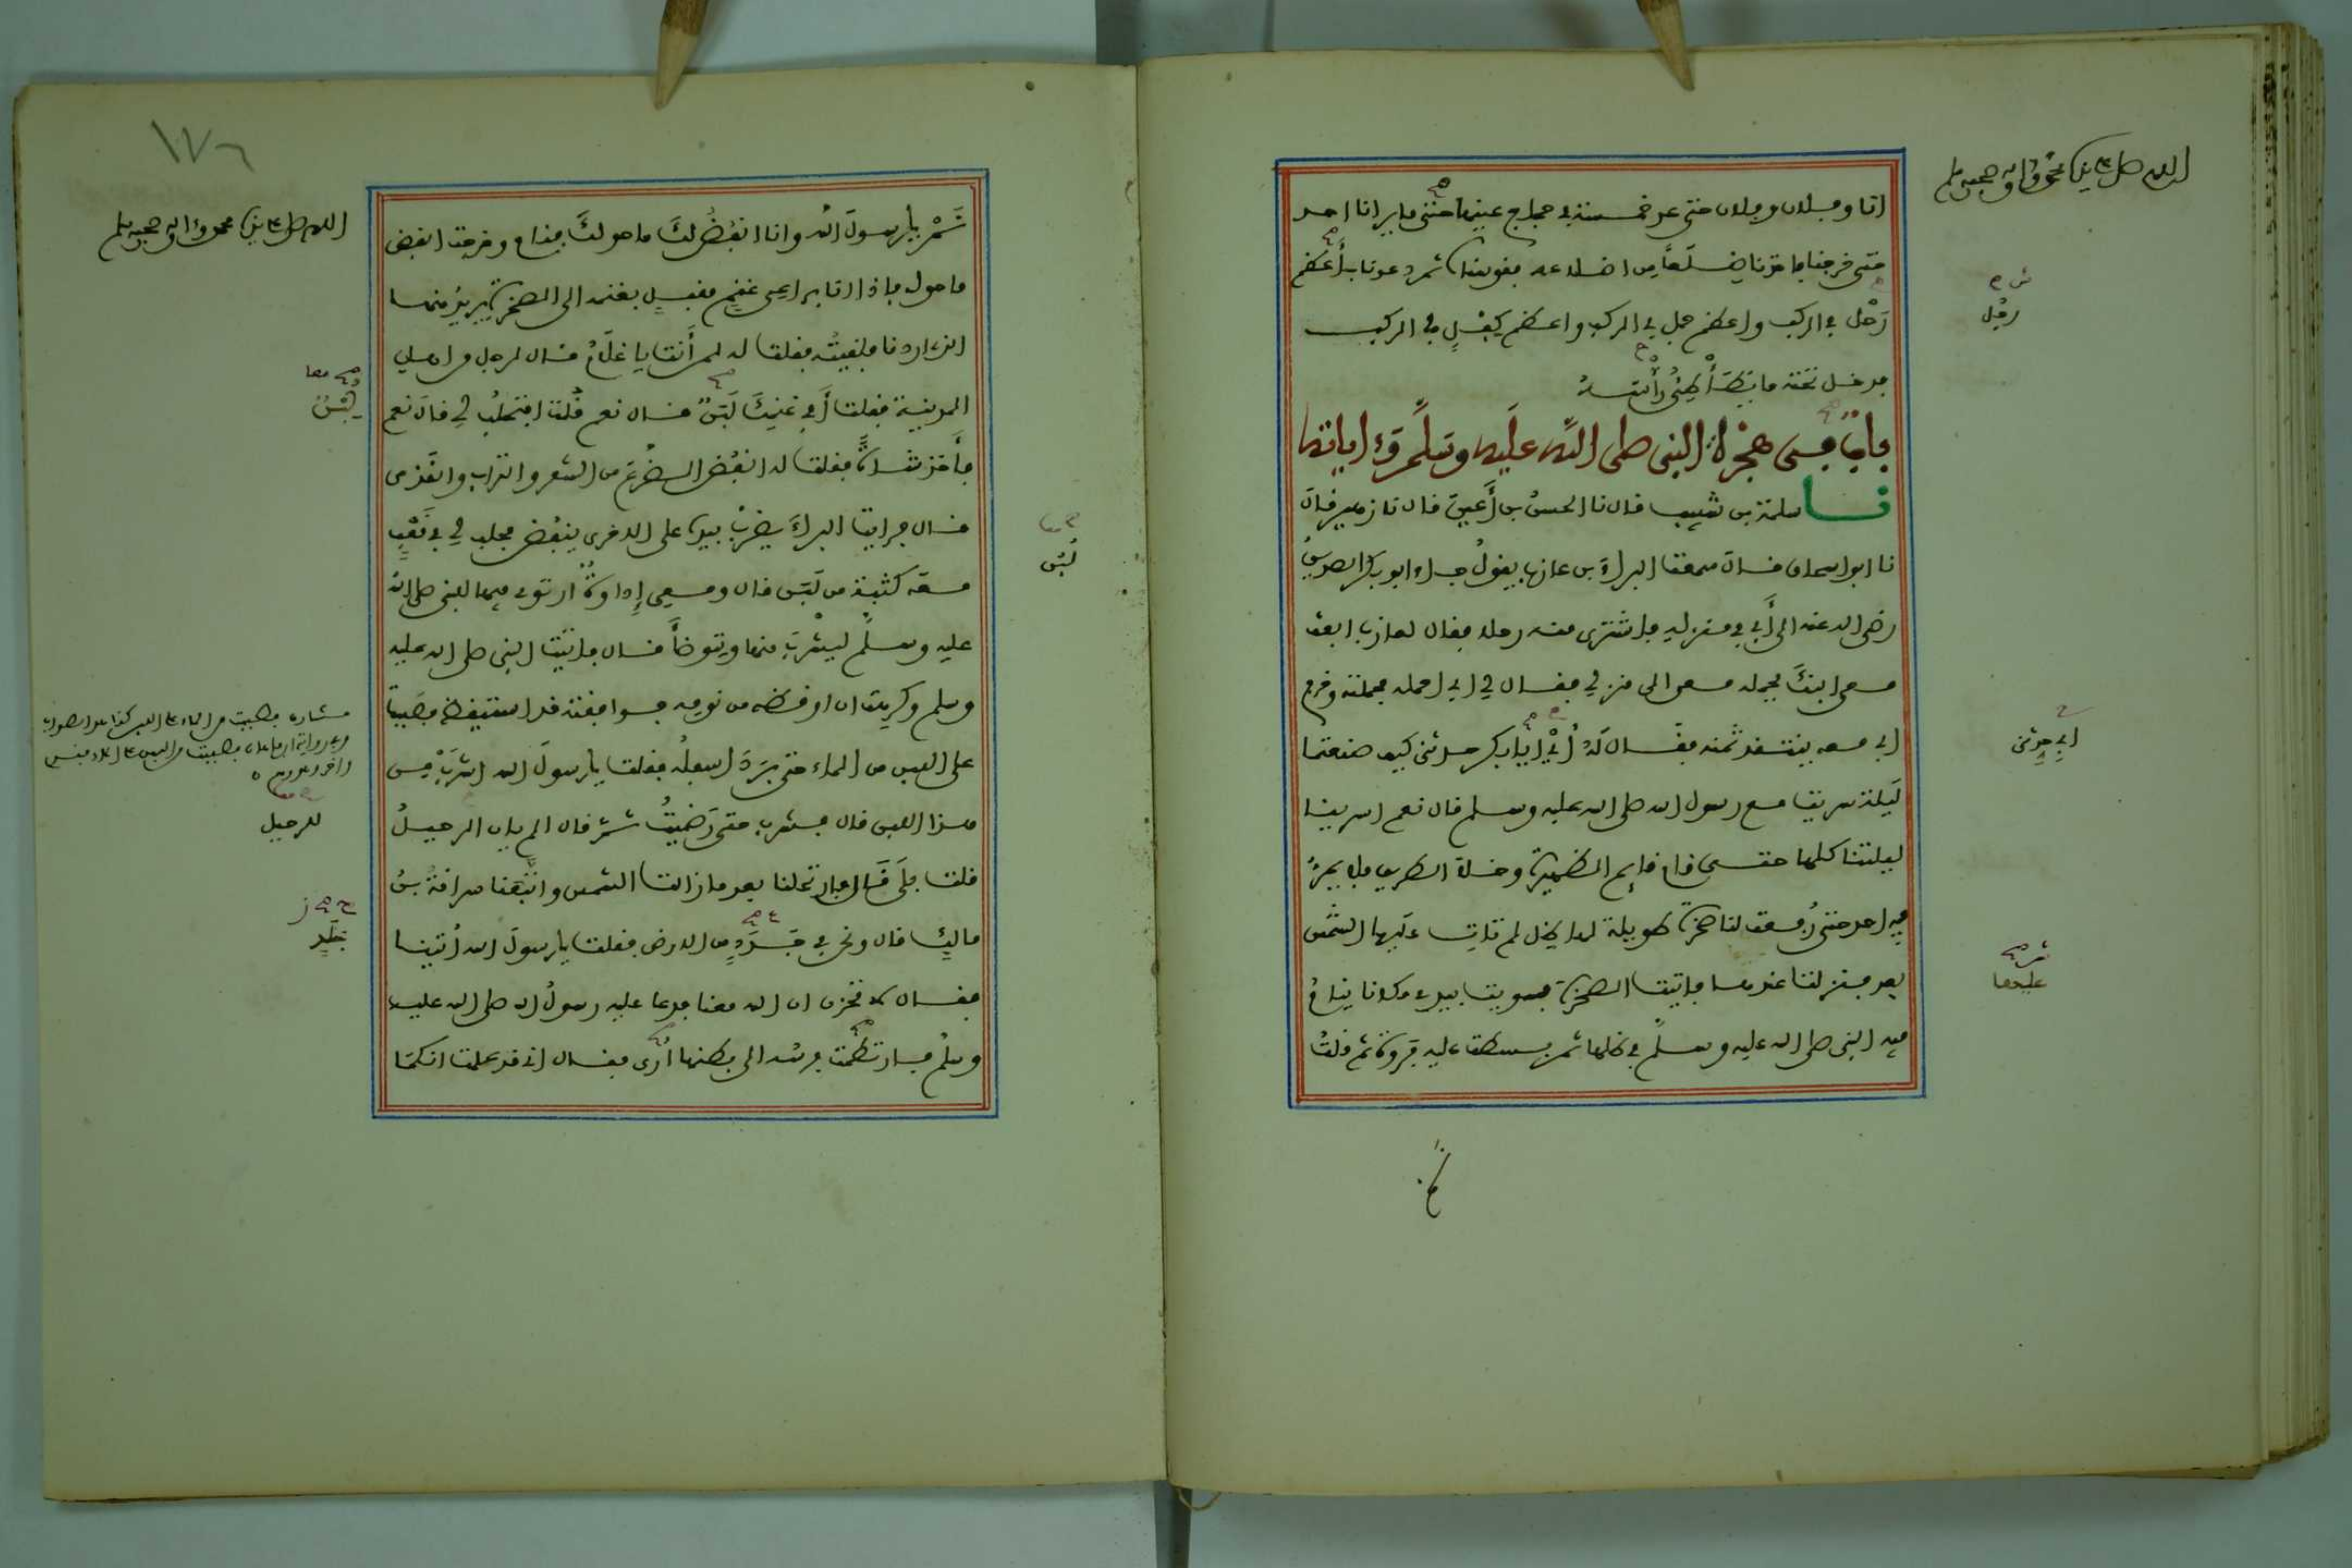 اللهم صل على نبينا محمد وآله وصحبه وسلم
انا وفلان وفلان حتى عد خمسة في حجاج عينها حتى ما يرانا احد
حتى خرجنا فاخذنا ضلعا من اضلاعه فقوسناه ثم دعونا باعظم
رَجُل في الركب واعظم جمل في الركب واعظم كِفْلٍ في الركب
فدخل تحته ما يُطَأْطِئُ رَأْسَهُ
بابٌ في هجرة النبي صلى الله عليه وسلم وآياته
نا سلمة بن شبيب قال نا الحسنُ بن أَعْيَنَ قال نا زهير قال
نا ابو اسحاق قال سمعت البراءَ بن عازب يقولُ جاء ابو بكر الصديقُ
رضي الله عنه الى أَبِي في منزله فاشترى منه رحلا فقال لعازب ابعث
معي ابنَكَ يحمله معي الى منزلي فقال لي ابي احمله فحملته وخرج
ابي معه ينتقد ثمنه فقال لَهُ أَبِي يا ابا بكر حدثني كيف صنعتما
لَيلةَ سريت مع رسول الله صلى الله عليه وسلم قال نعم اسرينا
ليلتنا كلها حتى قام قائم الظهيرة وخلا الطريق فلا يمرُّ
فيه احد حتى رُفعت لنا صخرة طويلة لها ظل لم تاتِ عليها الشمسُ
بعد فنزلنا عندها فاتيت الصخرةَ فسويت بيدي مكانا ينامُ
فيه النبي صلى الله عليه وسلم في ظلها ثم بسطت عليه فروة ثم قلتُ
رجُل
ابي حدثني
عليها
١٧٦
اللهم صل على نبينا محمد وآله وصحبه وسلم
نَمْ يا رسولَ الله وانا انفُضُ لكَ ما حولكَ فنام وخرجت انفض
ما حوله فاذا انا براعِي غنمٍ مقبلٍ بغنمه الى الصخرةِ يريدُ منها
الذي اردنا فلقيتُه فقلت له لمن أَنت يا غلامُ فقال لرجل من اهل
المدينة فقلت أَفِي غنمِكَ لَبَنٌ قال نعم قُلت افتحلُبُ لي قال نعم
فأَخذ شاةً فقلت له انفُضِ الضرعَ من الشعر والتراب والقذى
قال فرايت البراءَ يضربُ بيده على الاخرى ينفُض فحلب لي في قَعْبٍ
معه كُثبةً من لَبَن قال ومعي إِداوةٌ ارتوي فيها للنبي صلى الله
عليه وسلم ليشربَ منها ويتوضأَ قال فاتيتُ النبي صلى الله عليه
وسلم وكرهت ان اوقظه من نومه فوافقته قد استيقظ فصَبَبت
على اللبن من الماء حتى بَرَدَ اسفلُه فقلت يا رسولَ الله اشربْ مِن
هذا اللبن قال فشرب حتى رَضِيتُ ثم قال الم يان الرحيلُ
قلت بلَى قال فارتحلنا بعد ما زالت الشمس واتَّبَعَنا سراقةُ بنُ
مالكٍ قال ونحن في جَدَدٍ من الارض فقلت يا رسولَ الله أُتينا
فقال لا تحزن ان الله معنا فدعا عليه رسولُ الله صلى الله عليه
وسلم فارتطمت فرسه الى بطنها أُرَى فقال اني قد علمت انكما
لبنٌ
لَبَن
للرحيل
جَلَدٍ